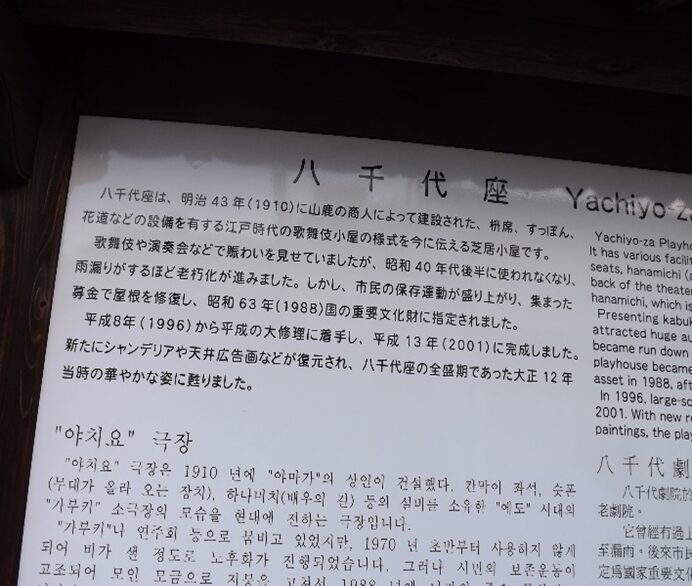 八千代座
八千代座は、明治43年(1910)に山鹿の商人によって建設された、枡席、すっぽん、
花道などの設備を有する江戸時代の歌舞伎小屋の様式を今に伝える芝居小屋です。
歌舞伎や演奏会などで賑わいを見せていましたが、昭和40年代後半に使われなくなり、
雨漏りがするほど老朽化が進みました。しかし、市民の保存運動が盛り上がり、集まった
募金で屋根を修復し、昭和63年(1988)国の重要文化財に指定されました。
平成8年(1996)から平成の大修理に着手し、平成13年(2001)に完成しました。
新たにシャンデリアや天井広告画などが復元され、八千代座の全盛期であった大正12年
当時の華やかな姿に甦りました。
Yachiyo-za
Yachiyo-za Playho
It has various facilit
seats, hanamichi (a
back of the theater
hanamichi, which is
Presenting kabuk
attracted huge au
became run down
playhouse became
asset in 1988, aft
In 1996, large-sc
2001. With new r
paintings, the play
"야치요" 극장
"야치요" 극장은 1910 년에 "야마가"의 상인이 건설했다. 칸막이 좌석, 슷폰
(무대가 올라 오는 장치), 하나미치(배우의 길) 등의 설비를 소유한 "에도" 시대의
"가부키" 소극장의 모습을 현대에 전하는 극장입니다.
"가부키"나 연주회 등으로 붐비고 있었지만, 1970 년 초반부터 사용하지 않게
되어 비가 샐 정도로 노후화가 진행되었습니다. 그러나 시민의 보존운동이
고조되어 모인 모금으로 지붕을 고쳐서, 1988 년에
八千代劇
八千代劇院於
老劇院。
它曾經有過上
至漏雨。後來市民
定爲國家重要文